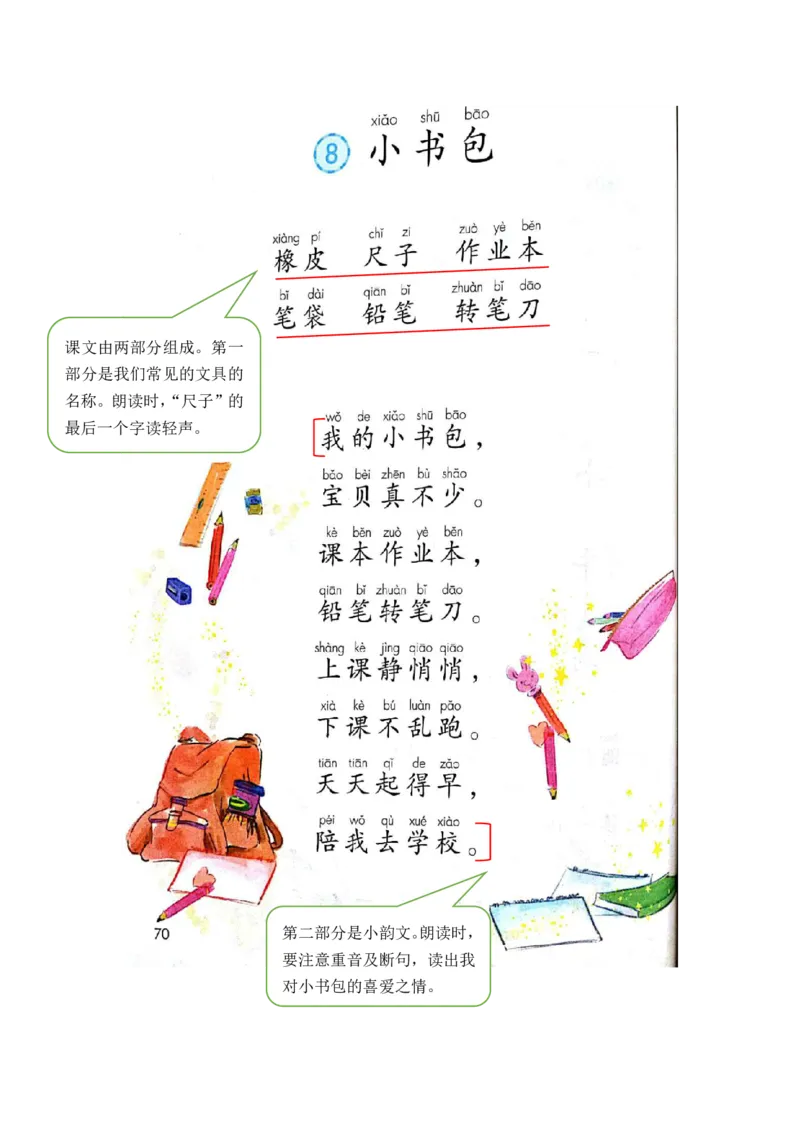 xiǎo shū bāo
8 小书包
xiàng pí chǐ zi zuò yè běn
橡皮 尺子 作业本
bǐ dài qiān bǐ zhuàn bǐ dāo
笔袋 铅笔 转笔刀
课文由两部分组成。第一
部分是我们常见的文具的
名称。朗读时，“尺子”的
最后一个字读轻声。
wǒ de xiǎo shū bāo
我的小书包，
bǎo bèi zhēn bù shǎo
宝贝真不少。
kè běn zuò yè běn
课本作业本，
qiān bǐ zhuàn bǐ dāo
铅笔转笔刀。
shàng kè jìng qiāo qiāo
上课静悄悄，
xià kè bú luàn pǎo
下课不乱跑。
tiān tiān qǐ de zǎo
天天起得早，
péi wǒ qù xué xiào
陪我去学校。
70
第二部分是小韵文。朗读时，
要注意重音及断句，读出我
对小书包的喜爱之情。